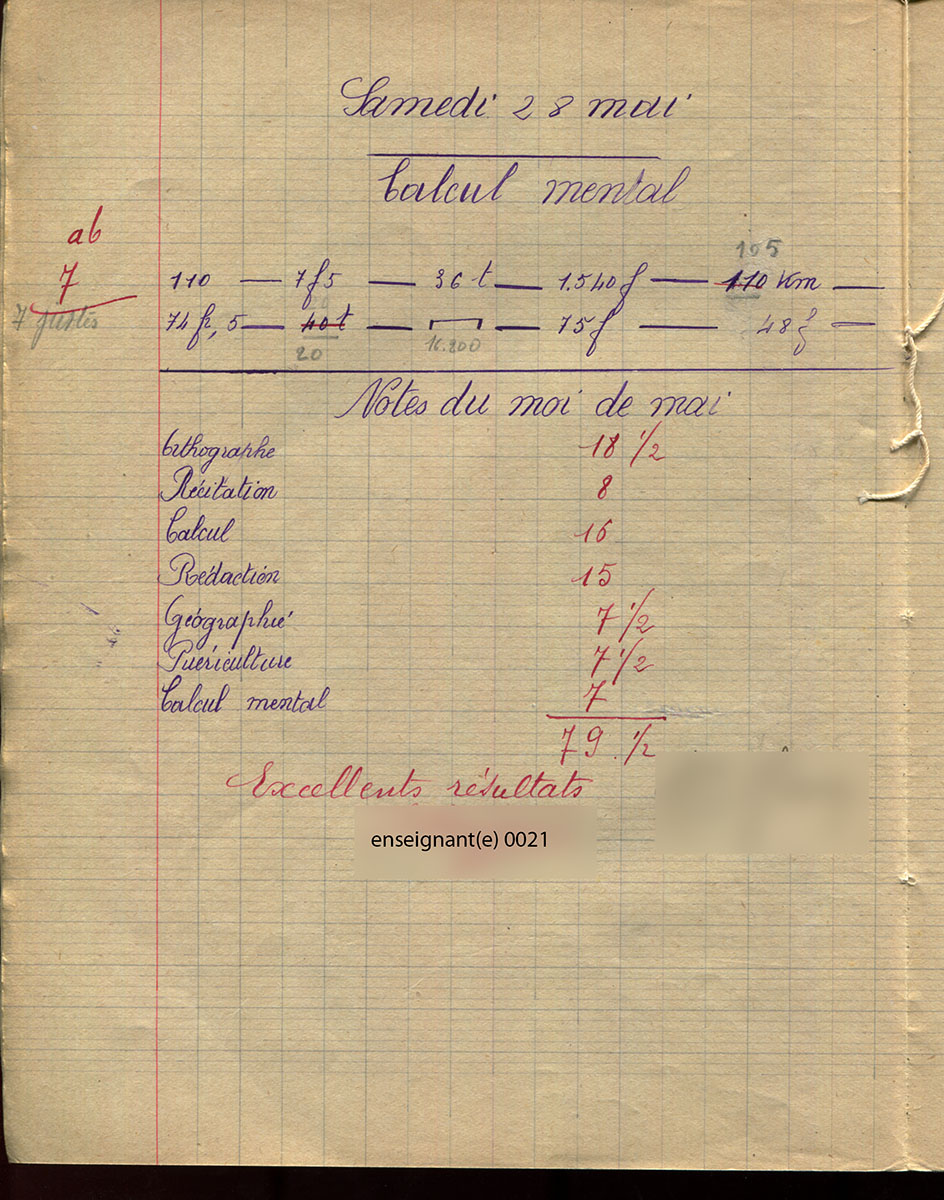 Samedi 28 mai
Calcul mental
ab
7
7 justes
105
110 — 7f5 — 36 t — 1540f — 110 Km —
74fr,5 — 40t — — 75f — 48f —
20 16.200
Notes du moi de mai
Orthographe 18 1/2
Récitation 8
Calcul 16
Rédaction 15
Géographie 7 1/2
Puériculture 7 1/2
Calcul mental 7
79 1/2
Excellents résultats
enseignant(e) 0021